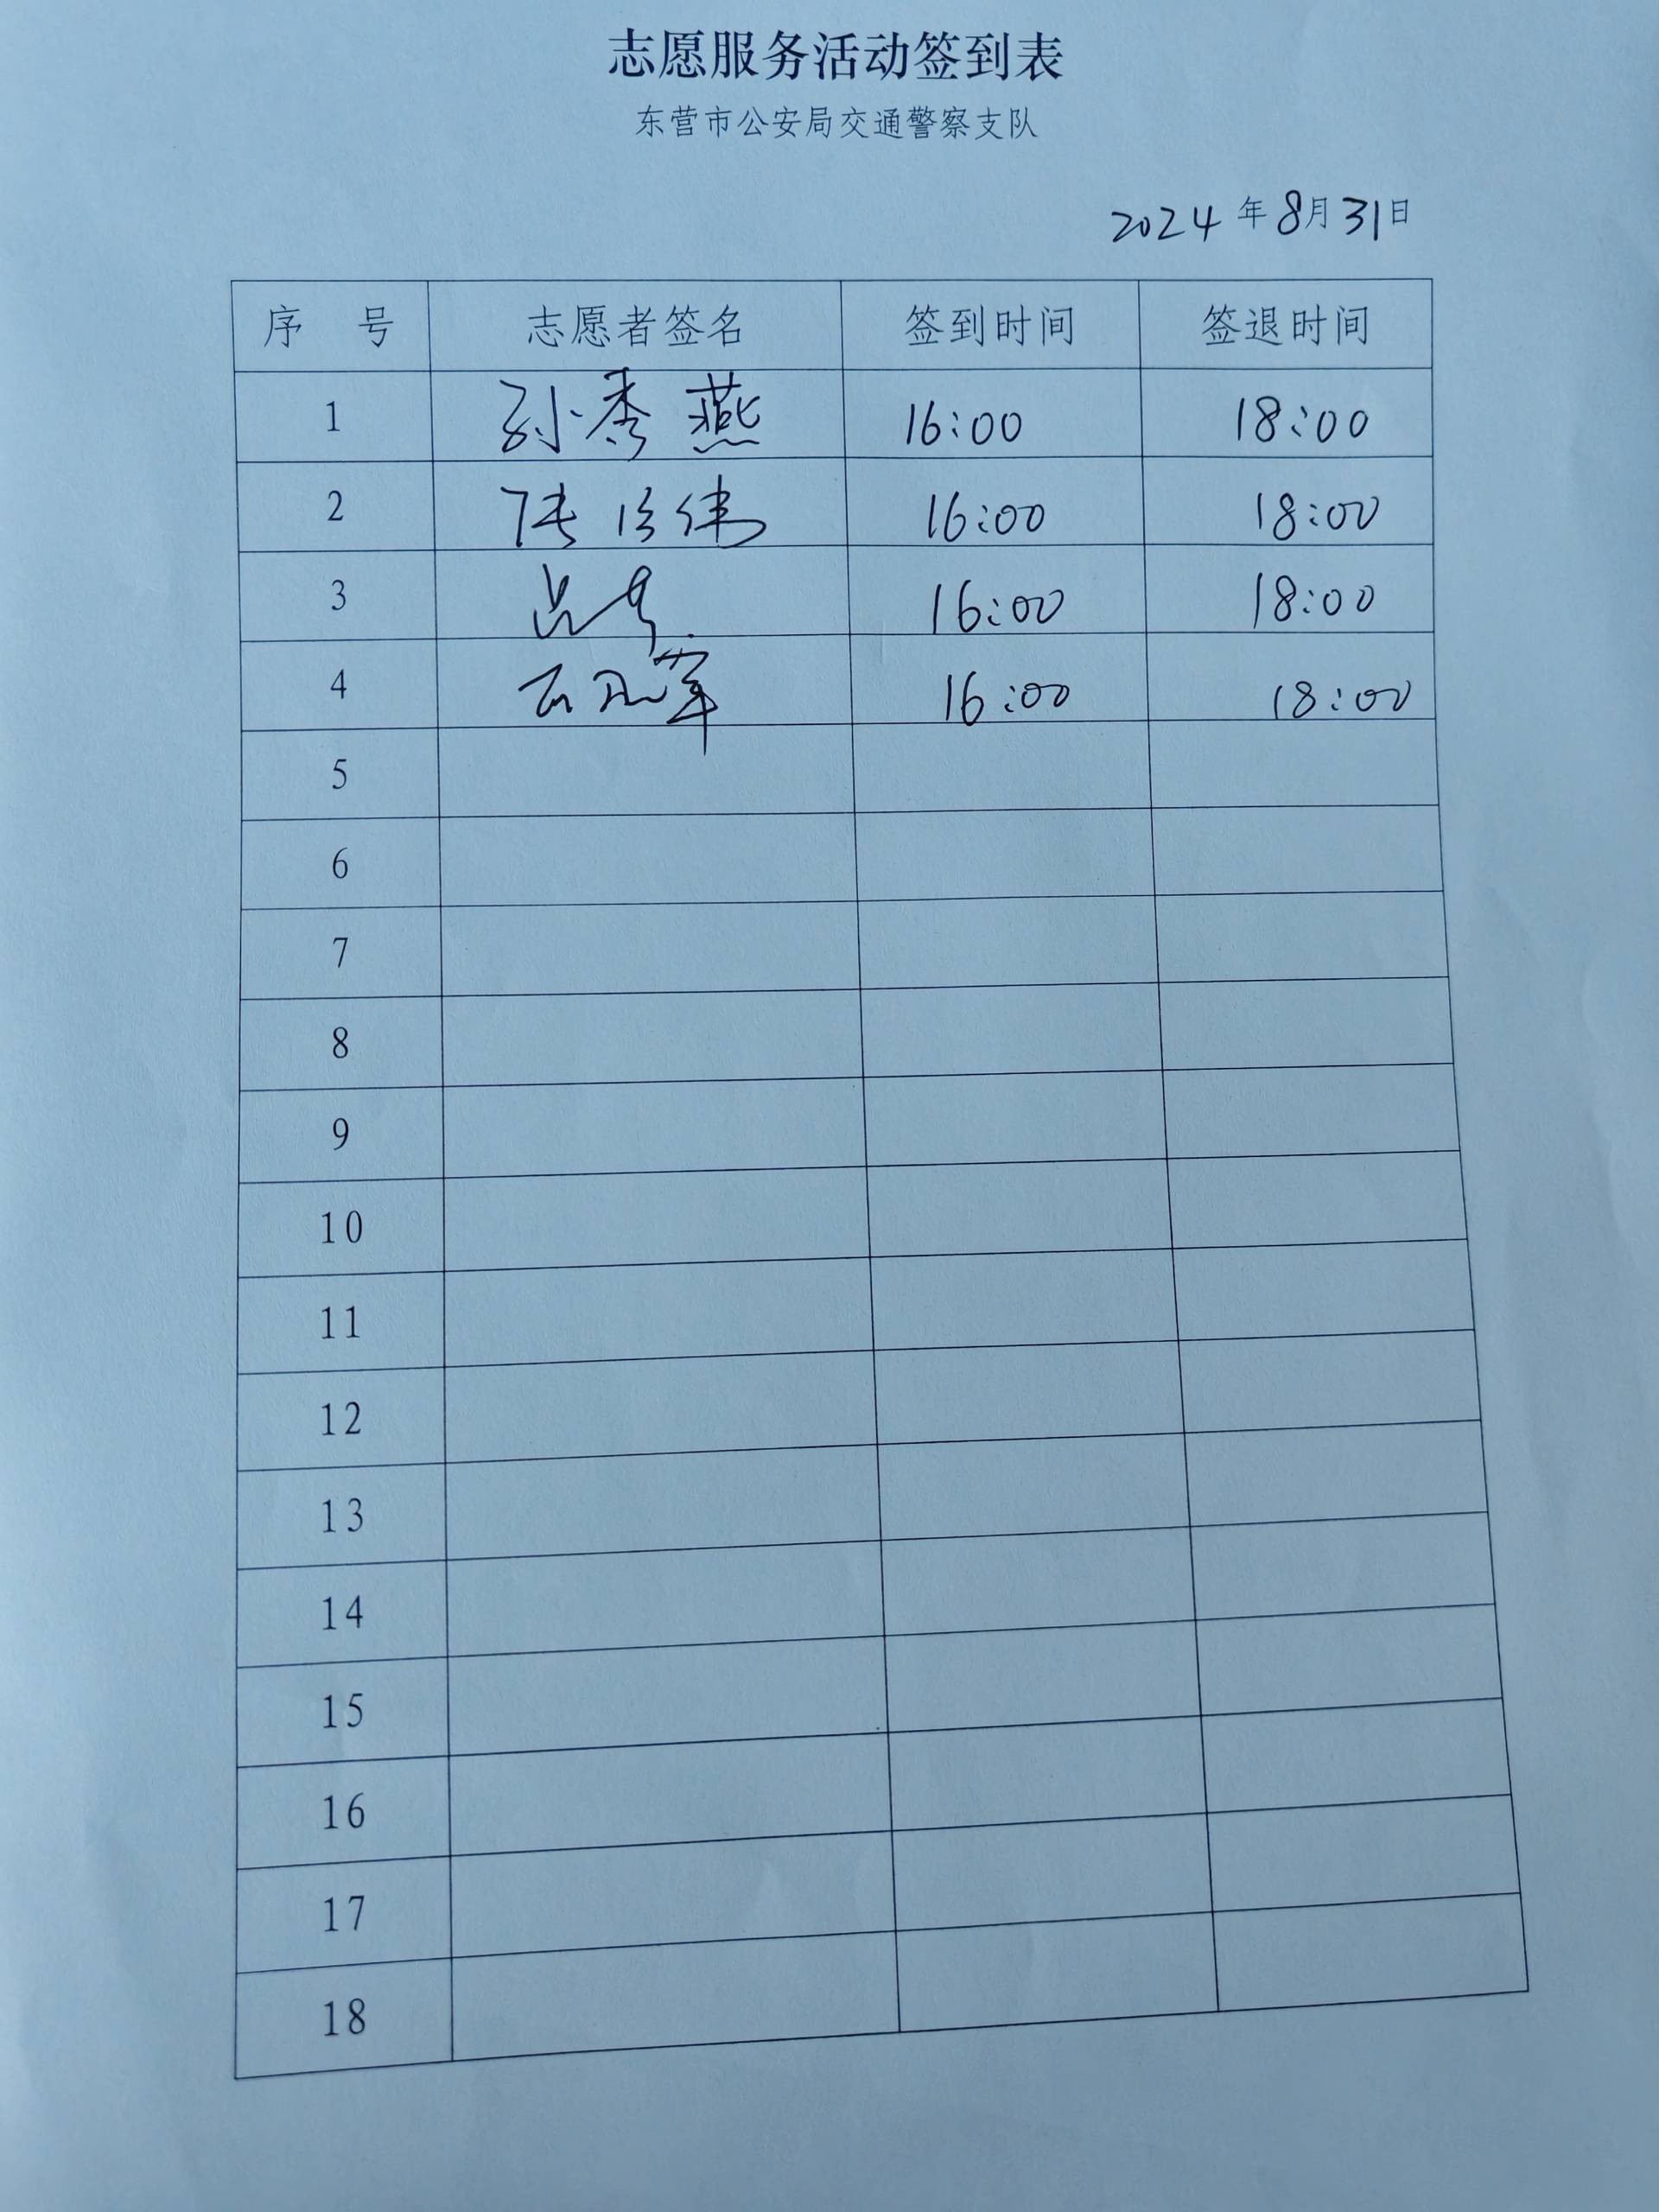 志愿服务活动签到表
东营市公安局交通警察支队
2024年8月31日
序 号 志愿者签名 签到时间 签退时间
1 孙秀燕 16:00 18:00
2 张 伟 16:00 18:00
3 16:00 18:00
4 军 16:00 18:00
5
6
7
8
9
10
11
12
13
14
15
16
17
18